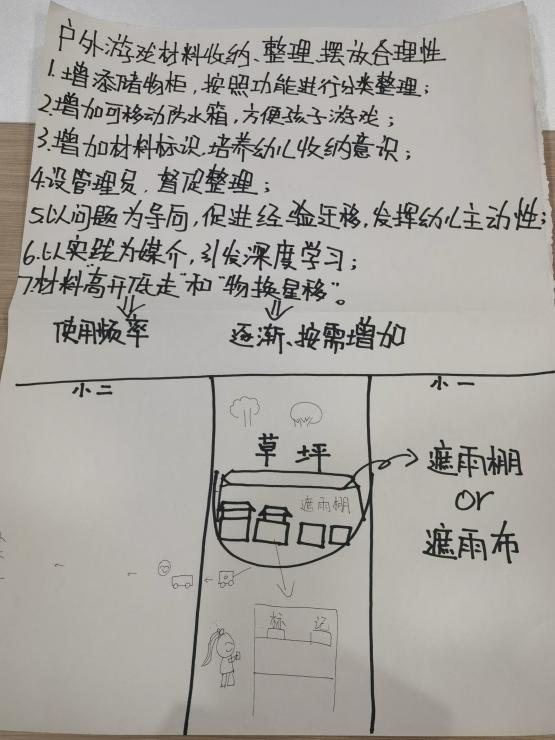 户外游戏材料收纳、整理、摆放合理性
1.增添储物柜，按照功能进行分类整理；
2.增加可移动防水箱，方便孩子游戏；
3.增加材料标识，培养幼儿收纳意识；
4.设管理员，督促整理；
5.以问题为导向，促进经验迁移，发挥幼儿主动性；
6.以实践为媒介，引发深度学习；
7.材料"高开低走"和"物换星移"。
使用频率 逐渐、按需增加
小二 小一
草坪
遮雨棚
or
遮雨布
遮雨棚
标 记